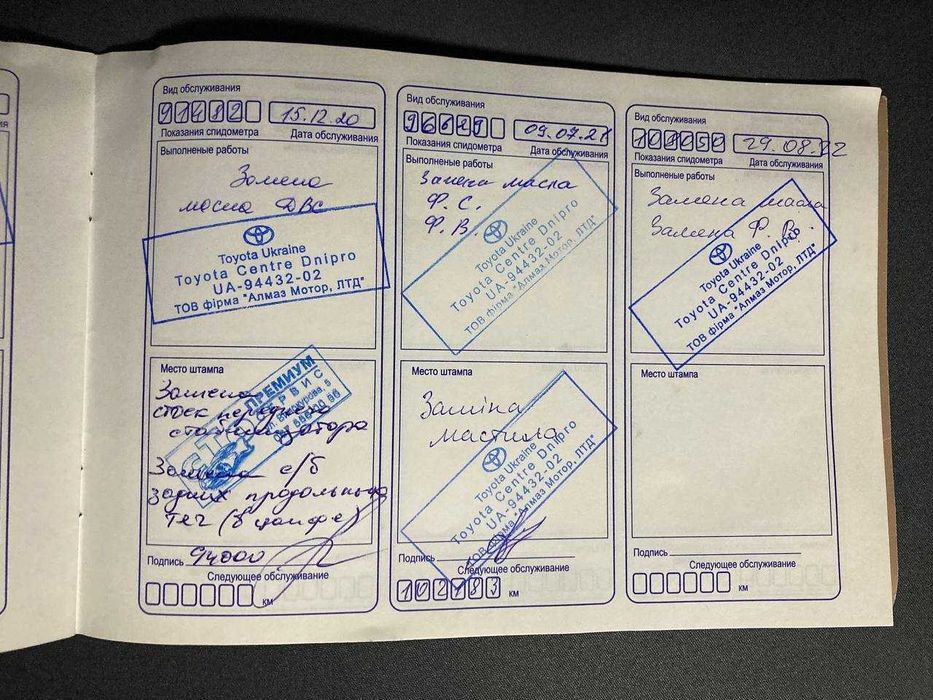 Вид обслуживания
91482 15.12.20
Показания спидометра Дата обслуживания
Выполненые работы
Замена
масла ДВС
Toyota Ukraine
Toyota Centre Dnipro
UA-94432-02
ТОВ фірма "Алмаз Мотор, ЛТД"
Место штампа
ПРЕМИУМ
СЕРВИС
СТО
Замена
стоек переднего
стабилизатора
Замена с/б
задних продольных
тяг (в цапфе)
Подпись 94000
Следующее обслуживание
км
Вид обслуживания
96629 09.07.21
Показания спидометра Дата обслуживания
Выполненые работы
Замена масла
Ф. С.
Ф. В.
Toyota Ukraine
Toyota Centre Dnipro
UA-94432-02
ТОВ фірма "Алмаз Мотор, ЛТД"
Место штампа
Заміна
мастила
Toyota Ukraine
Toyota Centre Dnipro
UA-94432-02
ТОВ фірма "Алмаз Мотор, ЛТД"
Подпись
Следующее обслуживание
102183 км
Вид обслуживания
29.08.22
Показания спидометра Дата обслуживания
Выполненые работы
Замена масла
Замена Ф. В.
Toyota Ukraine
Toyota Centre Dnipro
UA-94432-02
ТОВ фірма "Алмаз Мотор, ЛТД"
Место штампа
Подпись
Следующее обслуживание
км